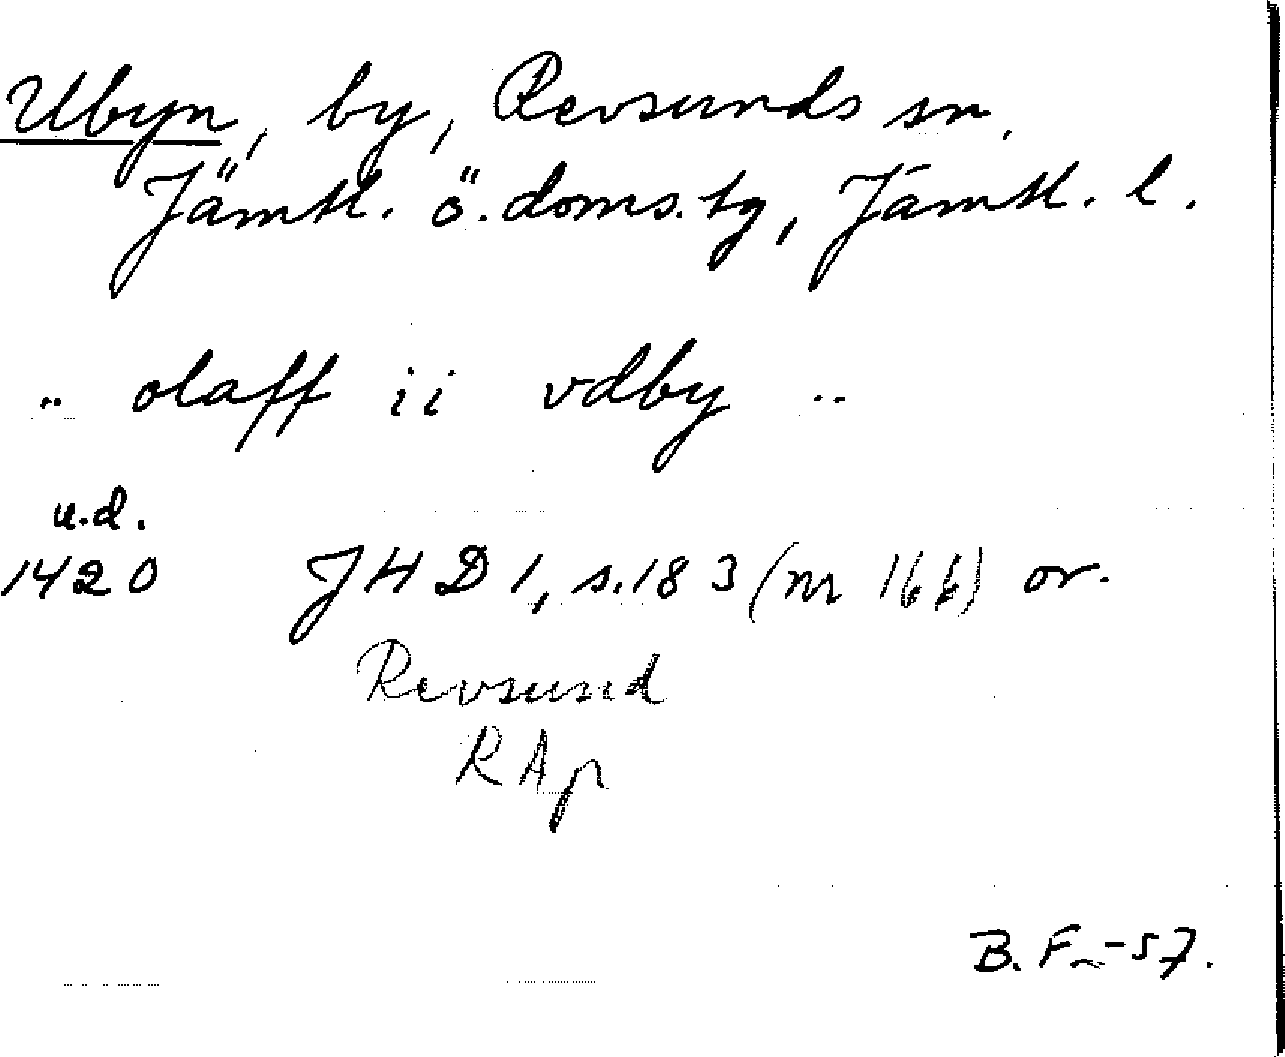 Ubyn, by, Revsunds sn.
Jämtl. ö. doms.tg, Jämtl. l.
.. olaff i i vdby ..
u.d.
1420 JHD 1, s.183 (nr 166) or.
Revsund
RAp
B. F. -57.